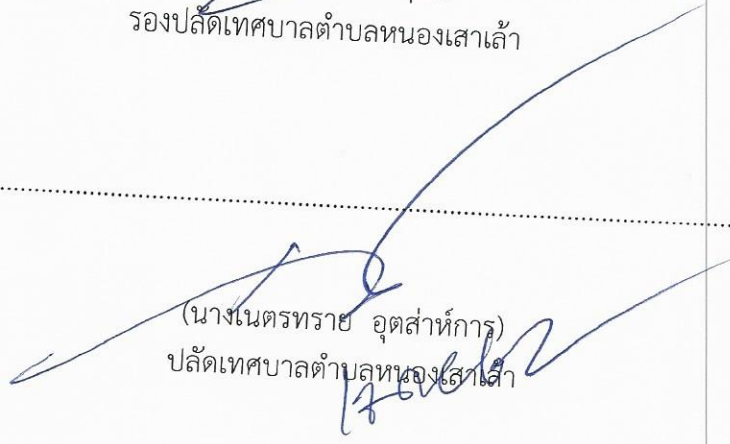 รองปลัดเทศบาลตำบลหนองเสาเล้า
(นางเนตรทราย อุตส่าห์การ)
ปลัดเทศบาลตำบลหนองเสาเล้า